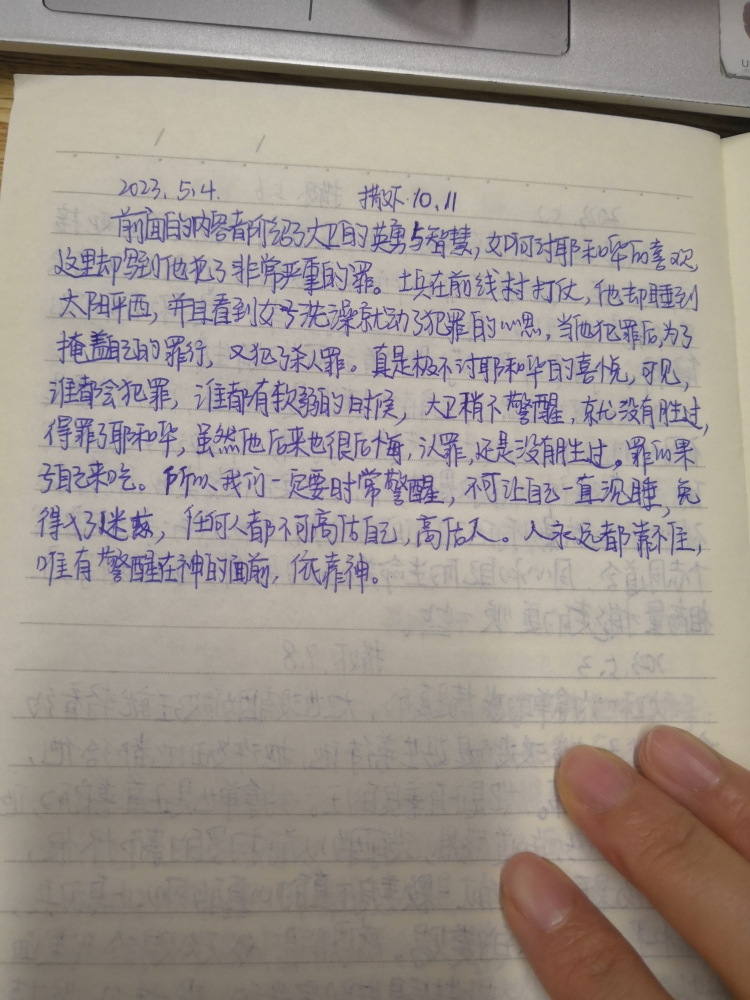 2023.5.4. 撒下.10.11
前面的内容都介绍了大卫的英勇与智慧,如何讨耶和华的喜欢
这里却写到他犯了非常严重的罪。士兵在前线打仗,他却睡到
太阳平西,并且看到女子洗澡就动了犯罪的心思,当他犯罪后,为了
掩盖自己的罪行,又犯了杀人罪。真是极不讨耶和华的喜悦,可见,
谁都会犯罪,谁都有软弱的时候,大卫稍不警醒,就没有胜过,
得罪了耶和华,虽然他后来也很后悔,认罪,还是没有胜过。罪的果
子自己来吃。所以我们一定要时常警醒,不可让自己一直沉睡,免
得入了迷惑,任何人都不可高估自己,高估人。人永远都靠不住,
唯有警醒在神的面前,依靠神。